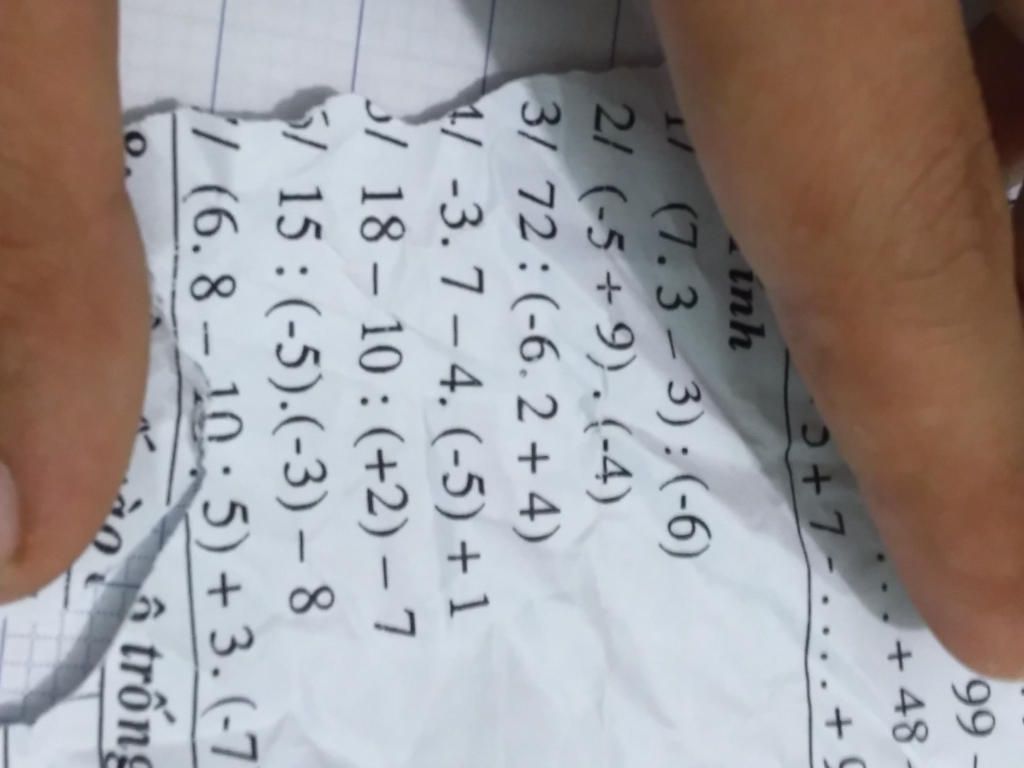 99 -
+ 48
5 + 7 - . . . . +
Tính
1/ (7. 3 – 3) : (-6)
2/ (-5 + 9) . (-4)
3/ 72 : (-6. 2 + 4)
4/ -3. 7 – 4. (-5) + 1
5/ 18 – 10 : (+2) – 7
6/ 15 : (-5).(-3) – 8
7/ (6. 8 – 10 : 5) + 3. (-7
8. ô trống